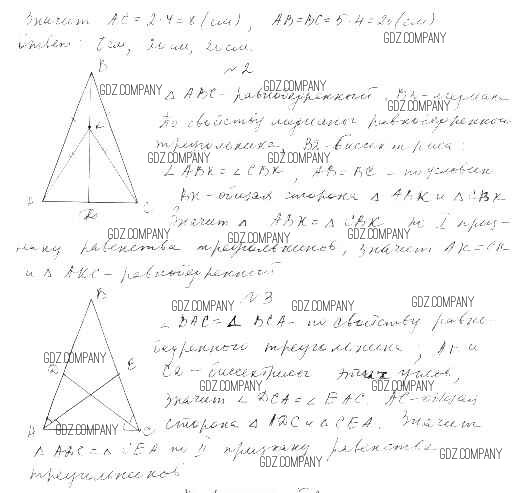 Значит AC = 2·4 = 8 (см), AB = BC = 5·4 = 20 (см)
GDZ.COMPANY
Ответ: 8 см, 20 см, 20 см.
№2
B
GDZ.COMPANY GDZ.COMPANY
Δ ABC - равнобедренный, медиана
GDZ.COMPANY
По свойству медианы равнобедренного
K
треугольника, - биссектриса:
GDZ.COMPANY GDZ.COMPANY
∠ ABK = ∠ CBK, AB = BC - по условию
BK - общая сторона Δ ABK и Δ CBK
A C
Значит Δ ABK = Δ CBK по I приз-
GDZ.COMPANY GDZ.COMPANY GDZ.COMPANY
наку равенства треугольников, значит AK = CK
и Δ AKC - равнобедренный
B
№3
GDZ.COMPANY GDZ.COMPANY GDZ.COMPANY
∠ BAC = ∠ BCA - по свойству равно-
бедренного треугольника, и
GDZ.COMPANY
E
- биссектрисы этих углов,
GDZ.COMPANY GDZ.COMPANY
Значит ∠ DCA = ∠ EAC AC - общая
A C
GDZ.COMPANY
сторона Δ ADC и Δ CEA. Значит
Δ ADC = Δ CEA по II признаку равенства
GDZ.COMPANY GDZ.COMPANY
треугольников